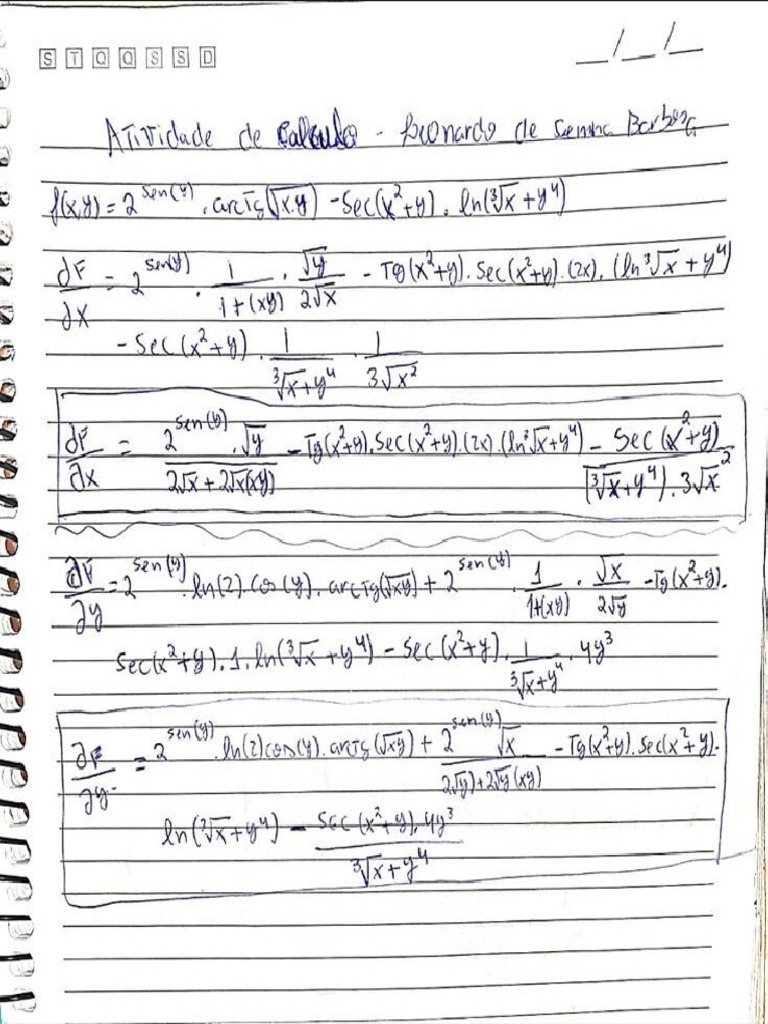 S T Q Q S S D
__/__/__
Atividade de Calculo - Leonardo de Barbosa
f(x,y) = 2^sen(y) . arcTg(√x.y) - Sec(x²+y) . ln(³√x + y⁴)
∂F/∂x = 2^sen(y) . 1/(1+(xy)) . √y/(2√x) - Tg(x²+y) . Sec(x²+y) . (2x) . (ln ³√x + y⁴)
- Sec(x²+y) . 1/(³√x+y⁴) . 1/(3√x²)
∂F/∂x = (2^sen(y) . √y)/(2√x + 2√x(xy)) - Tg(x²+y) . Sec(x²+y) . (2x) . (ln ³√x + y⁴) - Sec(x²+y)/((³√x+y⁴) . 3√x²)
∂F/∂y = 2^sen(y) . ln(2) . cos(y) . arcTg(√xy) + 2^sen(y) . 1/(1+(xy)) . √x/(2√y) - Tg(x²+y) .
Sec(x²+y) . 1 . ln(³√x + y⁴) - Sec(x²+y) . 1/(³√x+y⁴) . 4y³
∂F/∂y = 2^sen(y) . ln(2) cos(y) . arcTg(√xy) + (2^sen(y) √x)/(2√y) + 2√y (xy)) - Tg(x²+y) . Sec(x²+y) .
ln(³√x + y⁴) - (Sec(x²+y) . 4y³)/(³√x + y⁴)